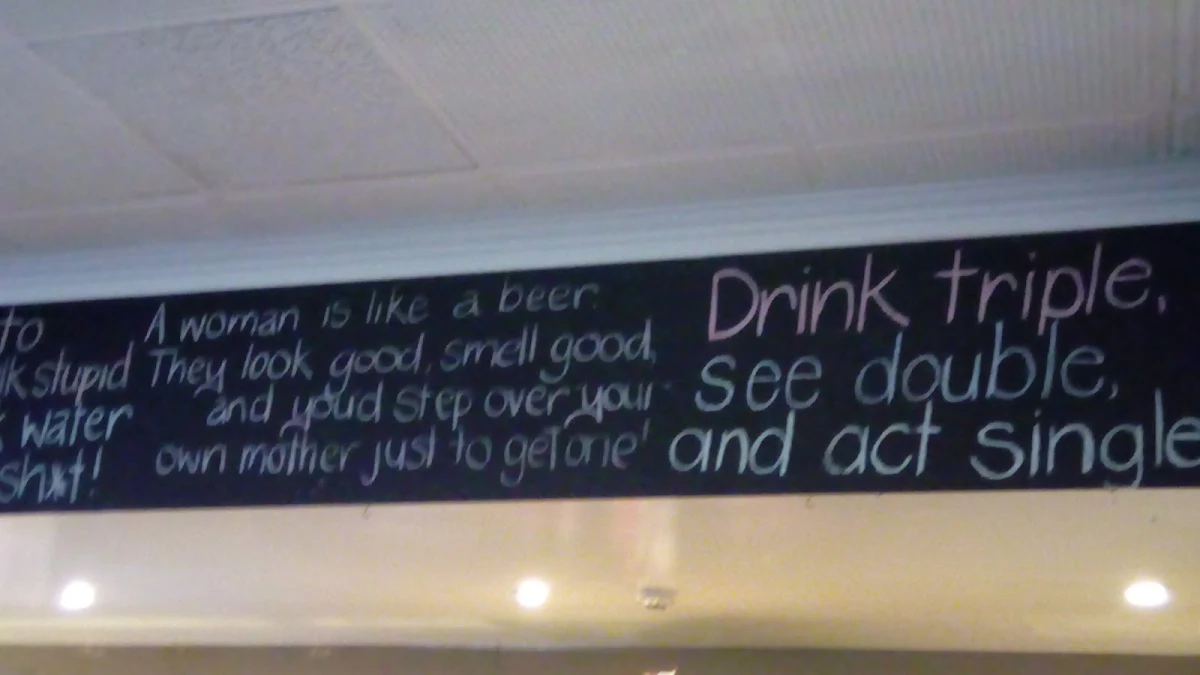 to
lk stupid
water
sh*t!
A woman is like a beer.
They look good, smell good,
and you'd step over your
own mother just to get one!
Drink triple,
see double,
and act single